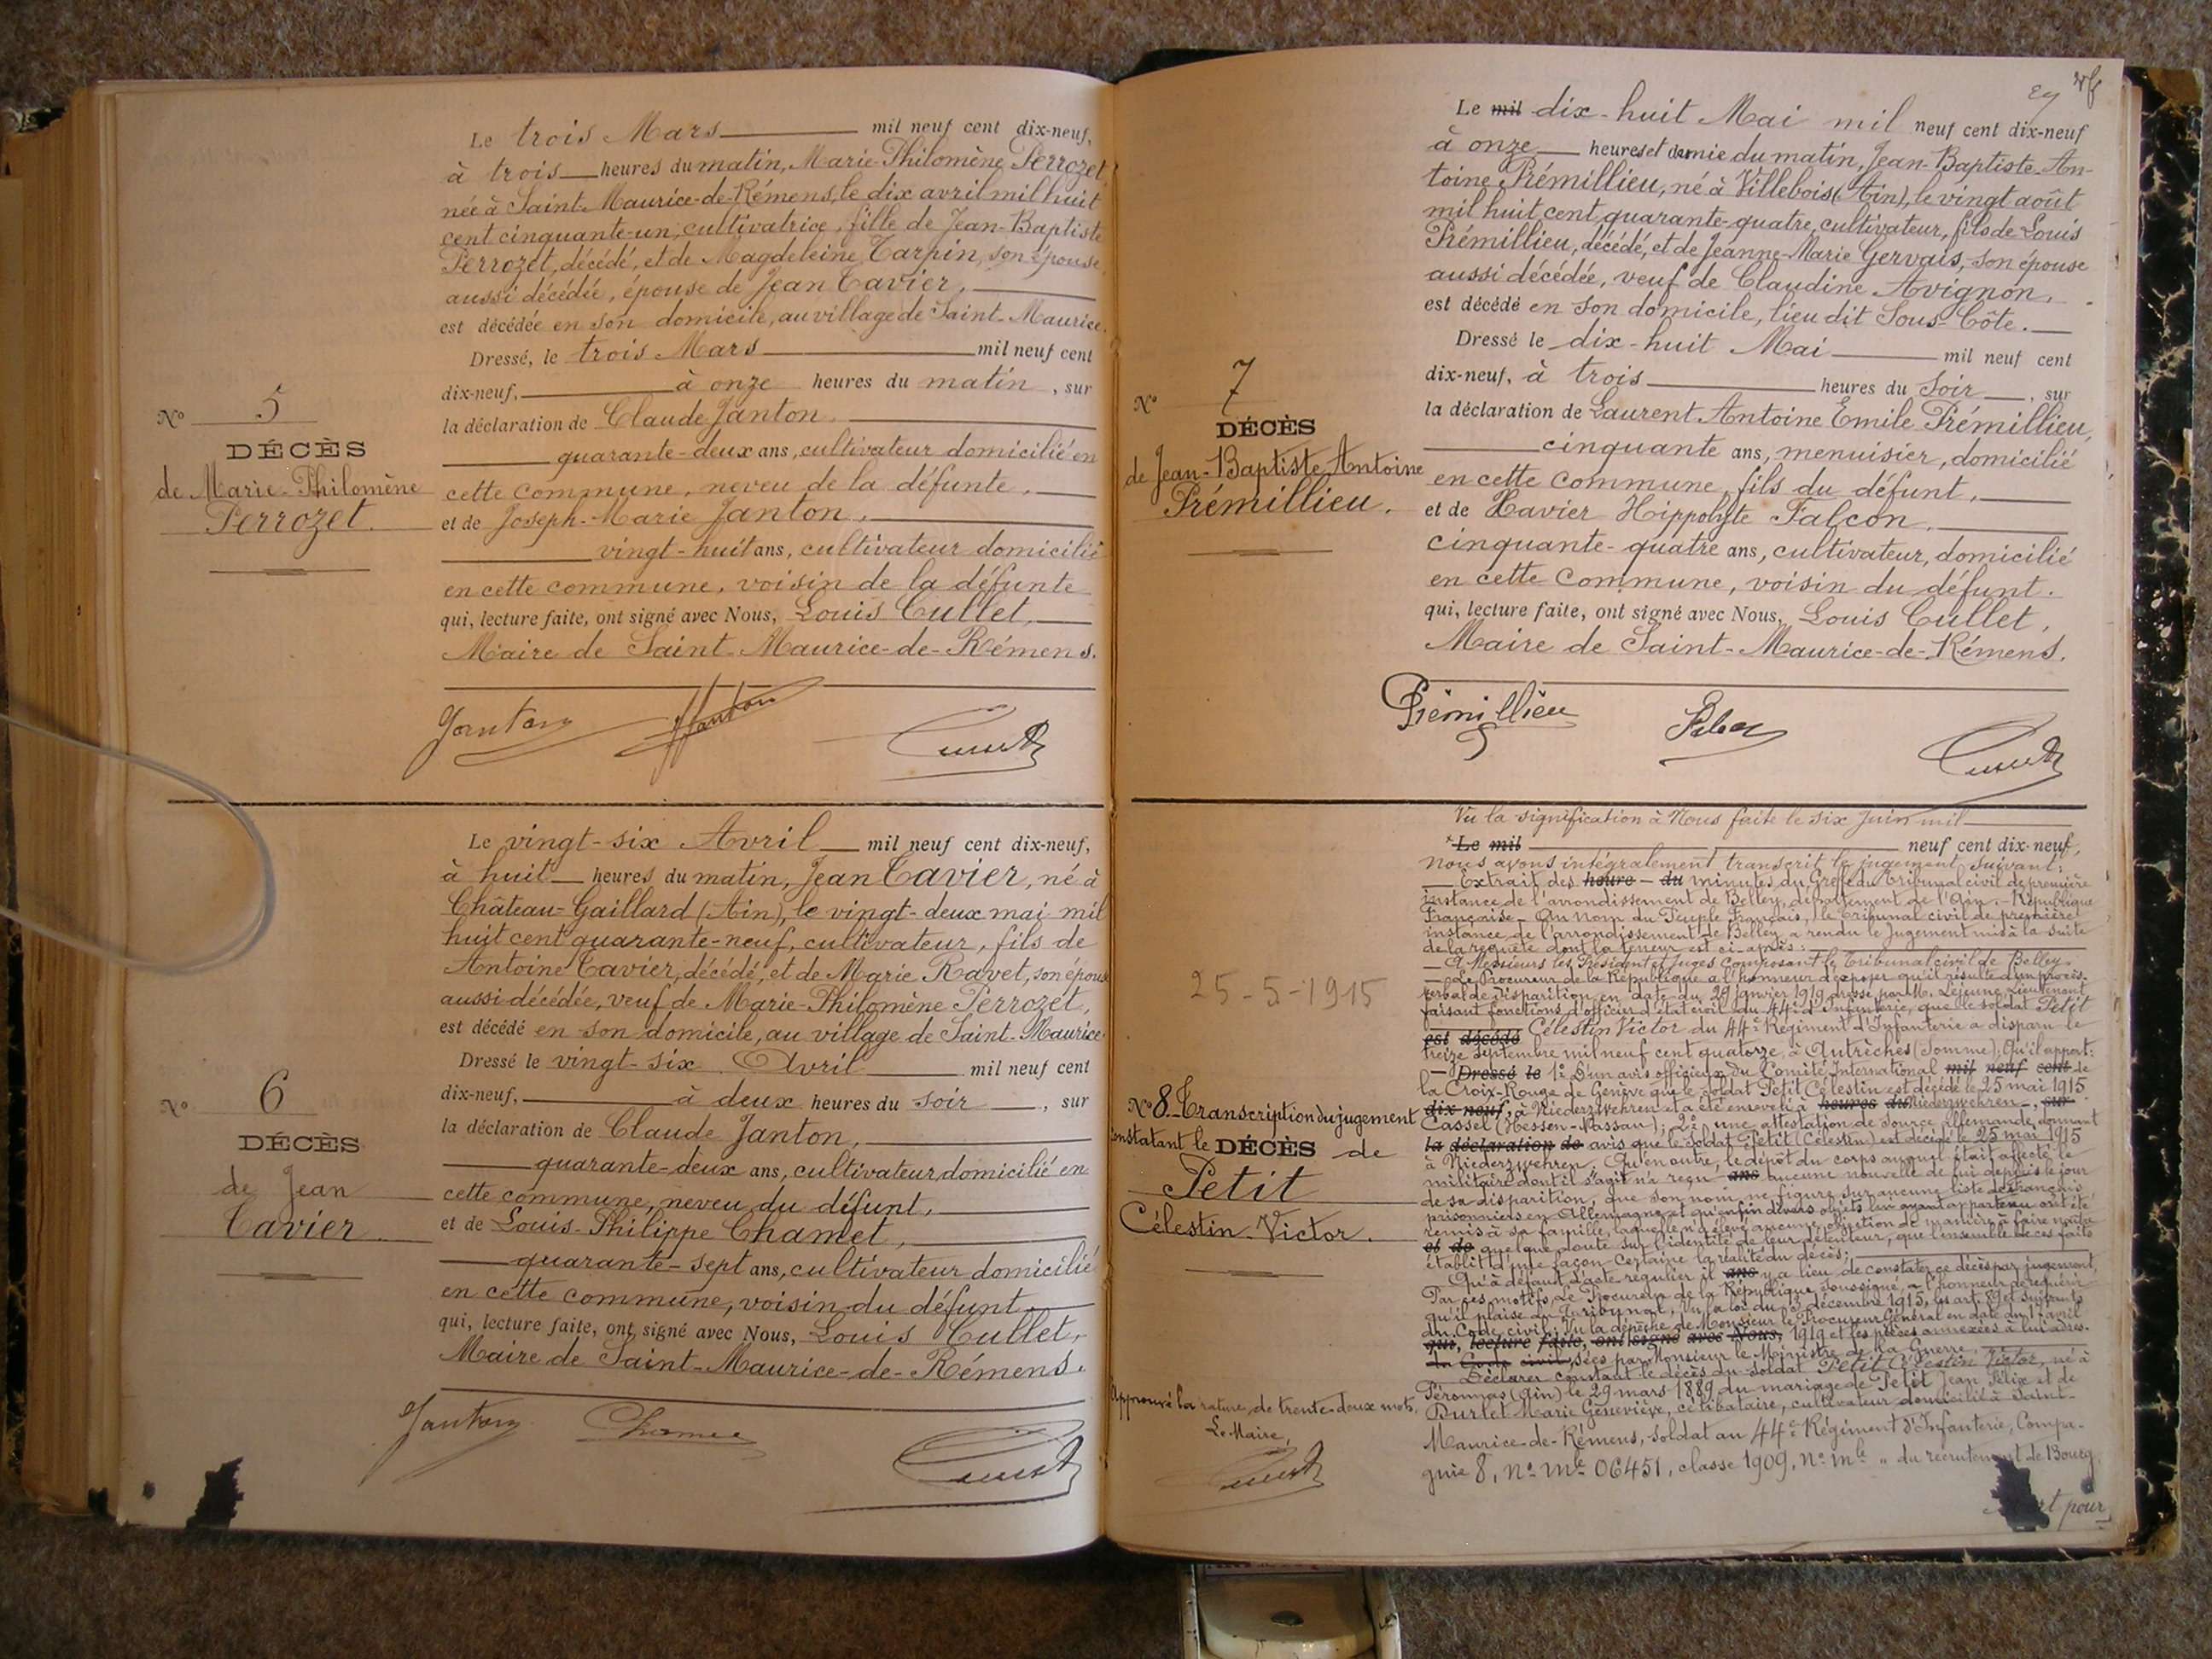 Le trois Mars mil neuf cent dix-neuf,
à trois heures du matin, Marie-Philomène Perrozet
née à Saint-Maurice-de-Rémens, le dix avril mil huit
cent cinquante-un, cultivatrice, fille de Jean-Baptiste
Perrozet, décédé, et de Magdeleine Tarpin, son épouse
aussi décédée, épouse de Jean Cavier,
est décédée en son domicile, au village de Saint-Maurice.
Dressé, le trois Mars mil neuf cent
dix-neuf, à onze heures du matin, sur
la déclaration de Claude Janton
quarante-deux ans, cultivateur domicilié en
cette commune, neveu de la défunte,
et de Joseph-Marie Janton,
vingt-huit ans, cultivateur domicilié
en cette commune, voisin de la défunte
qui, lecture faite, ont signé avec Nous, Louis Cullet,
Maire de Saint-Maurice-de-Rémens.
N° 5
DÉCÈS
de Marie-Philomène
Perrozet.
Janton Janton
Le vingt-six Avril mil neuf cent dix-neuf,
à huit heures du matin, Jean Cavier, né à
Château-Gaillard (Ain), le vingt-deux mai mil
huit cent quarante-neuf, cultivateur, fils de
Antoine Cavier, décédé, et de Marie Ravet, son épouse
aussi décédée, veuf de Marie-Philomène Perrozet,
est décédé en son domicile, au village de Saint-Maurice.
Dressé le vingt-six Avril mil neuf cent
dix-neuf, à deux heures du soir, sur
la déclaration de Claude Janton,
quarante-deux ans, cultivateur domicilié en
cette commune, neveu du défunt,
et de Louis-Philippe Chamet,
quarante-sept ans, cultivateur domicilié
en cette commune, voisin du défunt
qui, lecture faite, ont signé avec Nous, Louis Cullet,
Maire de Saint-Maurice-de-Rémens.
N° 6
DÉCÈS
de Jean
Cavier.
Janton
Le mil dix-huit Mai mil neuf cent dix-neuf
à onze heures et demie du matin, Jean-Baptiste-An-
toine Prémillieu, né à Villebois (Ain), le vingt août
mil huit cent quarante-quatre, cultivateur, fils de Louis
Prémillieu, décédé, et de Jeanne-Marie Gervais, son épouse
aussi décédée, veuf de Claudine Avignon,
est décédé en son domicile, lieu dit Sous-Côte.
Dressé le dix-huit Mai mil neuf cent
dix-neuf, à trois heures du Soir, sur
la déclaration de Laurent Antoine Emile Prémillieu,
cinquante ans, menuisier, domicilié
en cette commune, fils du défunt,
et de Xavier Hippolyte Falcon,
cinquante-quatre ans, cultivateur, domicilié
en cette commune, voisin du défunt.
qui, lecture faite, ont signé avec Nous, Louis Cullet,
Maire de Saint-Maurice-de-Rémens.
N° 7
DÉCÈS
de Jean-Baptiste Antoine
Prémillieu.
Prémillieu
Vu la signification à Nous faite le six Juin mil
Le mil neuf cent dix-neuf,
nous avons intégralement transcrit le jugement suivant:
Extrait des heure du minutes du Greffe du Tribunal civil de première
instance de l'arrondissement de Belley, département de l'Ain. - République
Française - Au Nom du Peuple Français, le Tribunal civil de première
instance de l'arrondissement de Belley a rendu le Jugement mis à la suite
de la requête dont la teneur est ci-après:
A Messieurs les Président et Juges composant le Tribunal civil de Belley.
Le Procureur de la République a l'honneur d'exposer qu'il résulte d'un procès-
verbal de disparition en date du 29 Janvier 1919 dressé par M. Lejeune, Lieutenant
faisant fonctions d'officier d'état civil du 44e d'Infanterie, que le soldat Petit
est décédé Célestin Victor du 44e Régiment d'Infanterie a disparu le
treize Septembre mil neuf cent quatorze, à Autrèches (Somme); Qu'il appert:
Dressé le 1° D'un avis officieux du Comité International mil neuf cent de
la Croix-Rouge de Genève que le soldat Petit Célestin est décédé le 25 mai 1915
dix-neuf, à Niederzwehren et a été enseveli à heures du Niederzwehren, sur
Cassel (Hessen-Nassau); 2° une attestation de source allemande donnant
la déclaration de avis que le soldat Petit (Célestin) est décédé le 25 mai 1915
à Niederzwehren; Qu'en outre, le dépôt du corps auquel était affecté le
militaire dont il s'agit n'a reçu ans aucune nouvelle de lui depuis le jour
de sa disparition, que son nom ne figure sur aucune liste de français
prisonniers en Allemagne et qu'enfin divers objets lui ayant appartenu ont été
remis à sa famille, laquelle n'a élevé aucune objection de manière à faire naître
et de quelque doute sur l'identité de leur détenteur, que l'ensemble de ces faits
établit d'une façon certaine la réalité du décès;
Qu'à défaut d'acte régulier il ans y a lieu de constater ce décès par jugement,
Par ces motifs, Le Procureur de la République soussigné a l'honneur de requérir
qu'il plaise au Tribunal, Vu la loi du 3 décembre 1915, les art. 89 et suivants
du Code civil, Vu la dépêche de Monsieur le Procureur Général en date du 1er avril
qui, lecture faite, ont signé avec Nous, 1919 et les pièces annexées à lui adres-
du Code civil, sées par Monsieur le Ministre de la Guerre,
Déclarer constant le décès du soldat Petit Célestin Victor, né à
Péronnas (Ain) le 29 mars 1889 du mariage de Petit Jean Félix et de
Burtet Marie Geneviève, célibataire, cultivateur domicilié à Saint-
Maurice-de-Rémens, soldat au 44e Régiment d'Infanterie, Compa-
gnie 8, N° mle 06451, classe 1909, N° mle " du recrutement de Bourg,
pour
25-5-1915
N° 8. Transcription du jugement
constatant le DÉCÈS de
Petit
Célestin-Victor.
Approuvé la rature de trente-deux mots,
Le Maire,